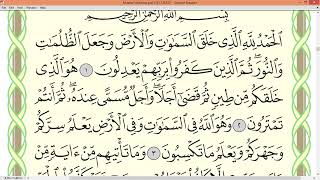 بِسْمِ ٱللَّهِ ٱلرَّحْمَٰنِ ٱلرَّحِيمِ
ٱلْحَمْدُ لِلَّهِ ٱلَّذِى خَلَقَ ٱلسَّمَٰوَٰتِ وَٱلْأَرْضَ وَجَعَلَ ٱلظُّلُمَٰتِ
وَٱلنُّورَ ثُمَّ ٱلَّذِينَ كَفَرُوا۟ بِرَبِّهِمْ يَعْدِلُونَ ١ هُوَ ٱلَّذِى
خَلَقَكُم مِّن طِينٍ ثُمَّ قَضَىٰٓ أَجَلًا وَأَجَلٌ مُّسَمًّى عِندَهُۥ ثُمَّ أَنتُمْ
تَمْتَرُونَ ٢ وَهُوَ ٱللَّهُ فِى ٱلسَّمَٰوَٰتِ وَفِى ٱلْأَرْضِ يَعْلَمُ سِرَّكُمْ
وَجَهْرَكُمْ وَيَعْلَمُ مَا تَكْسِبُونَ ٣ وَمَا تَأْتِيهِم مِّنْ ءَايَةٍ مِّنْ